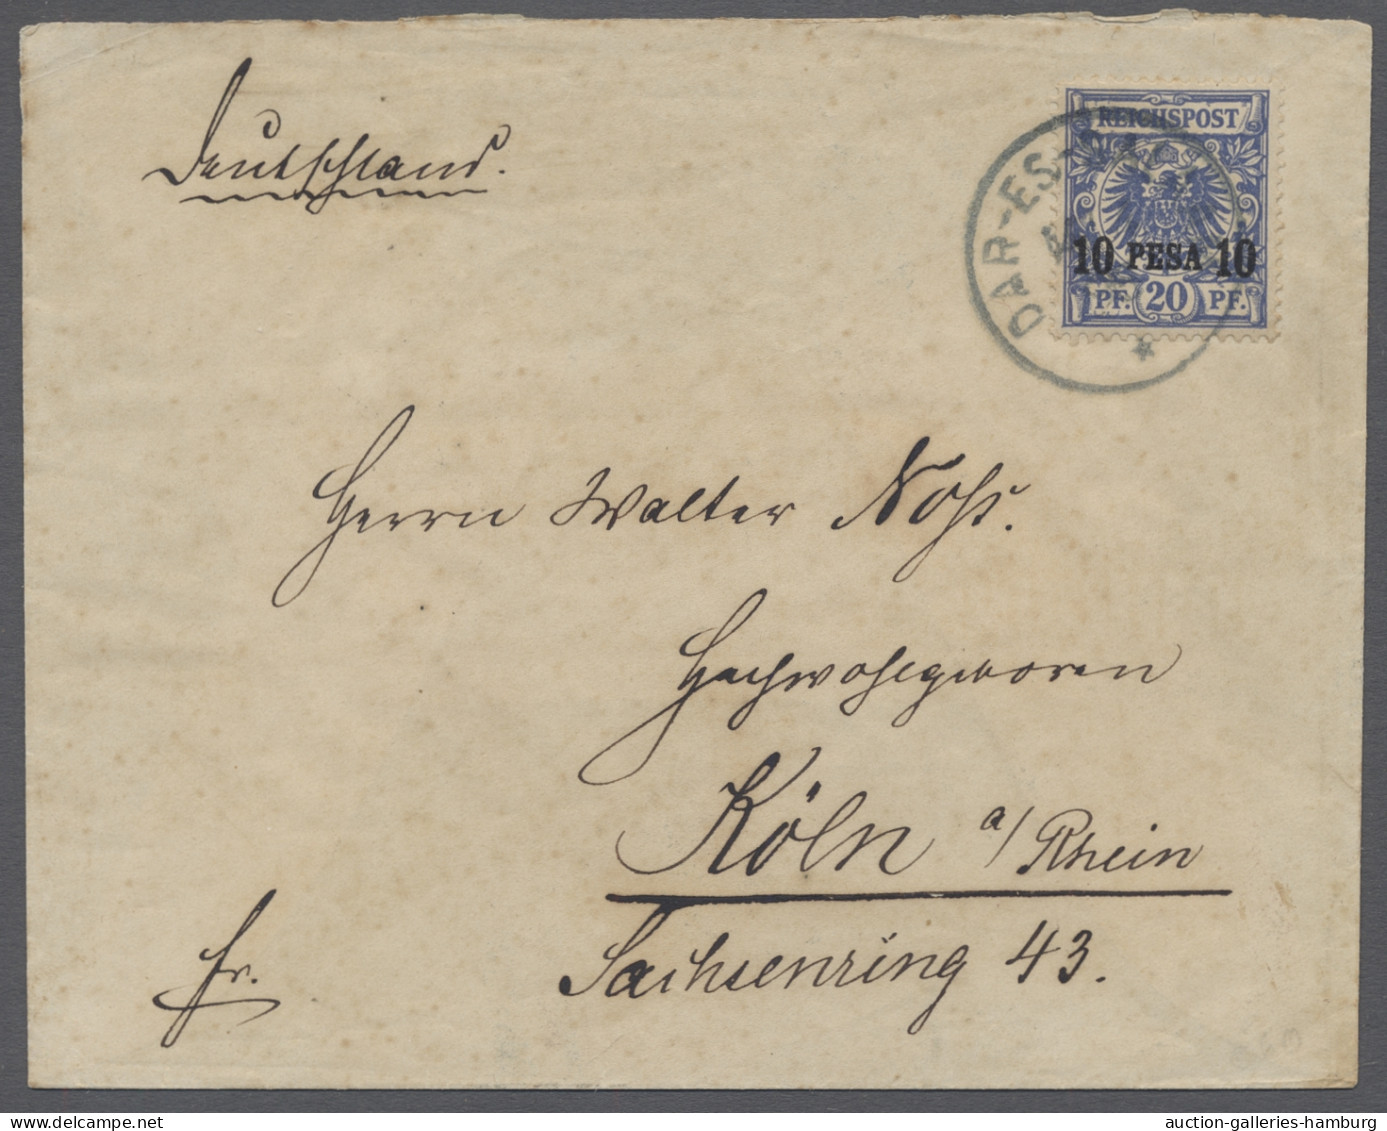 Deutschland.
REICHSPOST
10 PESA 10
PF. 20 PF.
DAR-ES-
*
Herrn Walter Nohs.
Hochwohlgeboren
Köln a/Rhein
Fr.
Sachsenring 43.
auction-galleries-hamburg